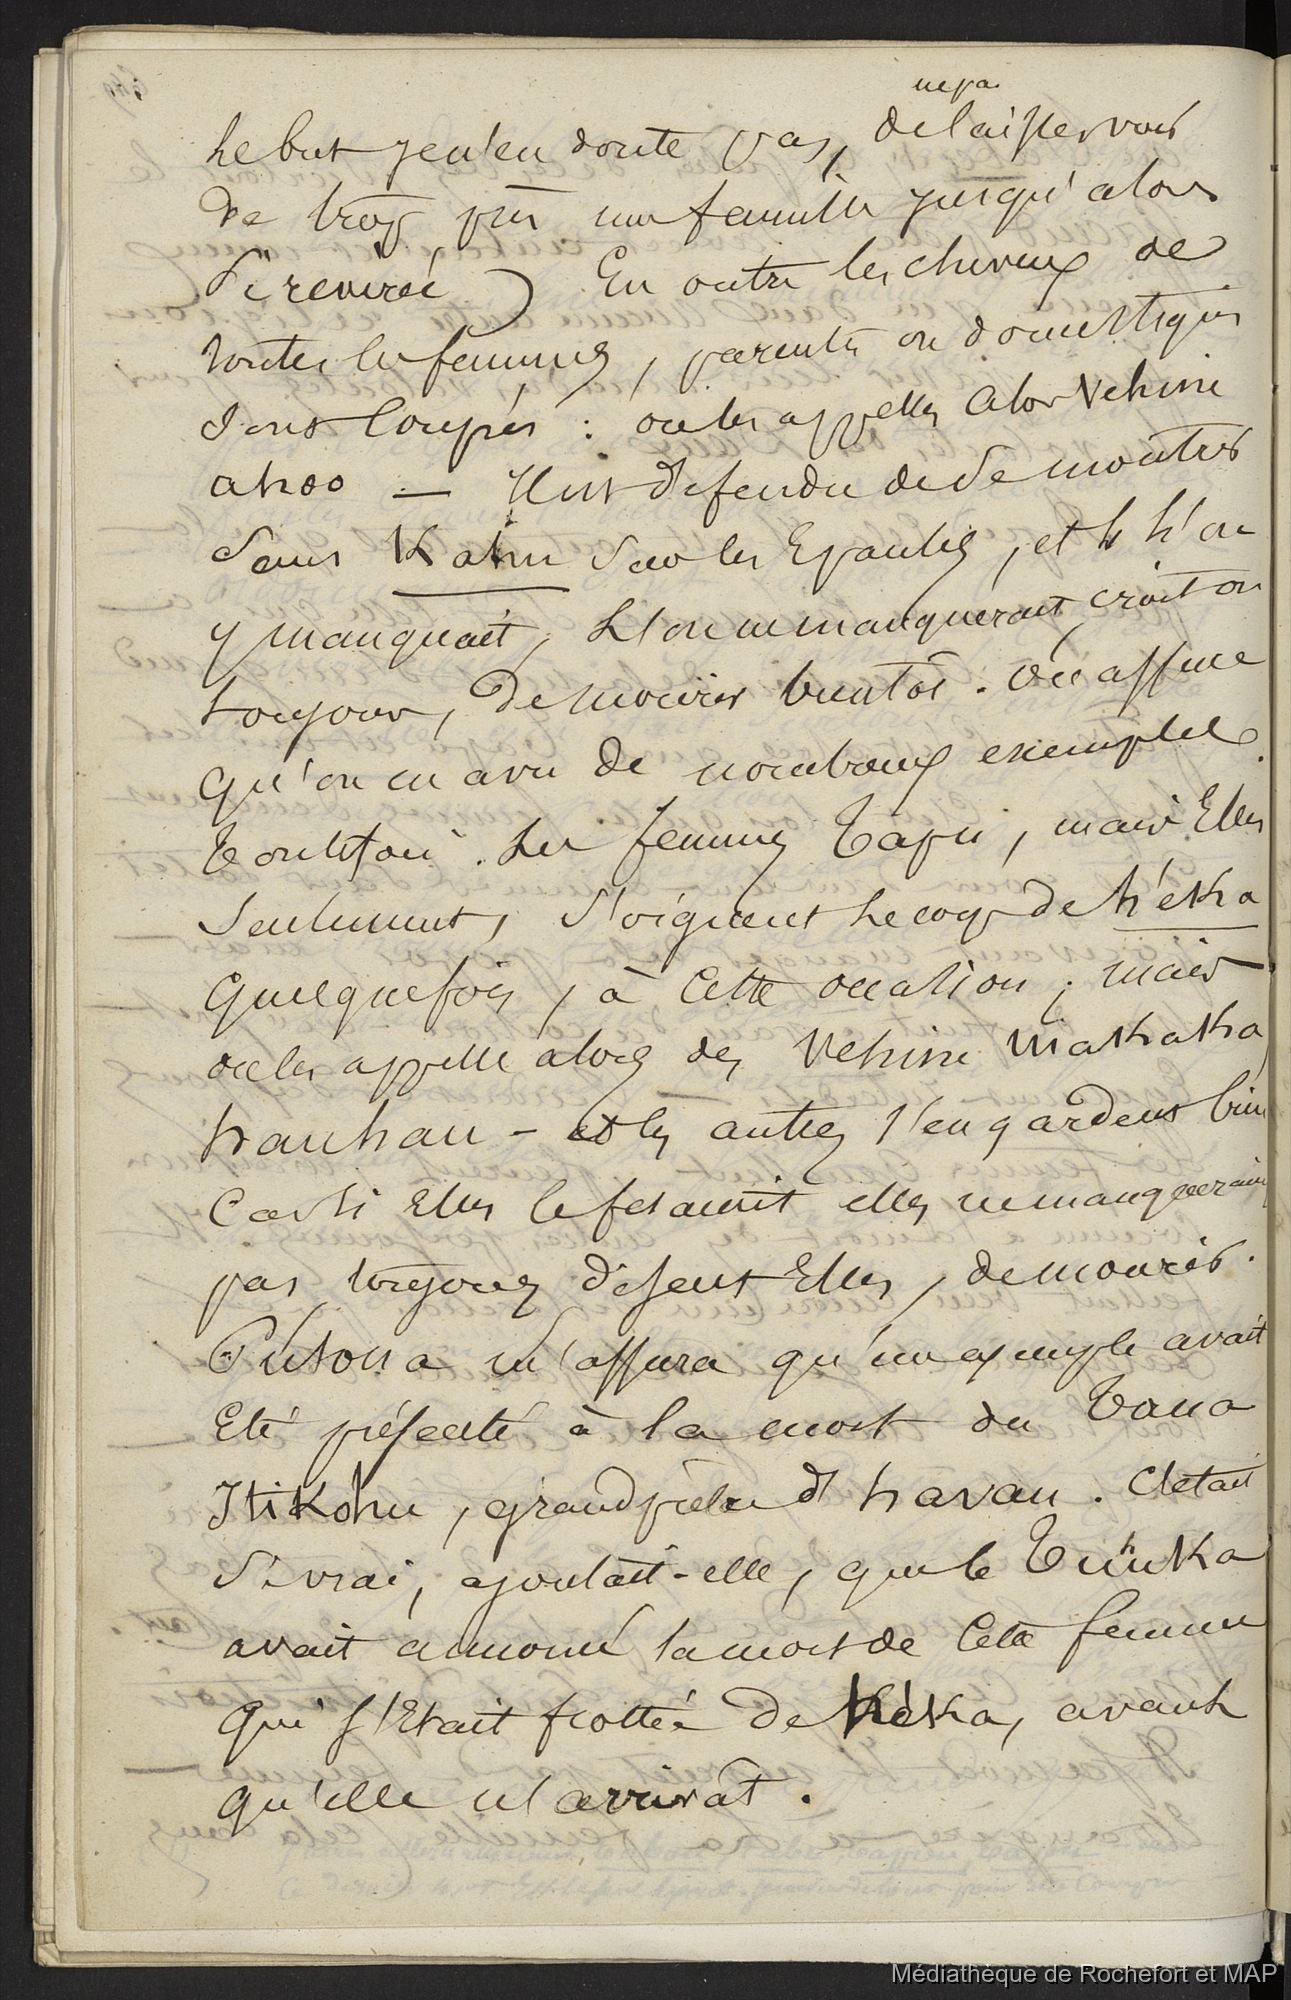 ne pa
le but je n'en doute pas, de laisser voir
de trop près une famille jusqu'alors
si révérée) En outre les cheveux de
toutes les femmes, parentes ou domestiques
sont coupés : on les appelles alors Vehine
ahoo — Il est défendu de se montrer
sans Kahu sur les Epaules, et si l'on
y manquait, l'on ne manquerait, croit on
toujours, de mourir bientôt. On assure
qu'on en a vu de nombreux exemples.
Toutefois. Les femmes Tapu, mais Elles
seulement, s'oignent le corps de h'eka
quelquefois, à cette occasion ; mais
on les appelle alors des Vehine makaka
hauhau - et les autres s'en gardent bien
car si Elles le fesaient elles ne manqueraient
pas toujours disent Elles, de mourir.
Putona m'assura qu'un exemple avait
Eté présenté à la mort du Taua
Itikohu, grand père d' havau. C'etait
si vrai, ajoutait-elle, que le Tuhuka
avait annoncé la mort de cette femme
qui s'Etait frottée de hèka, avant
qu'elle n'arrivât.
Médiathèque de Rochefort et MAP